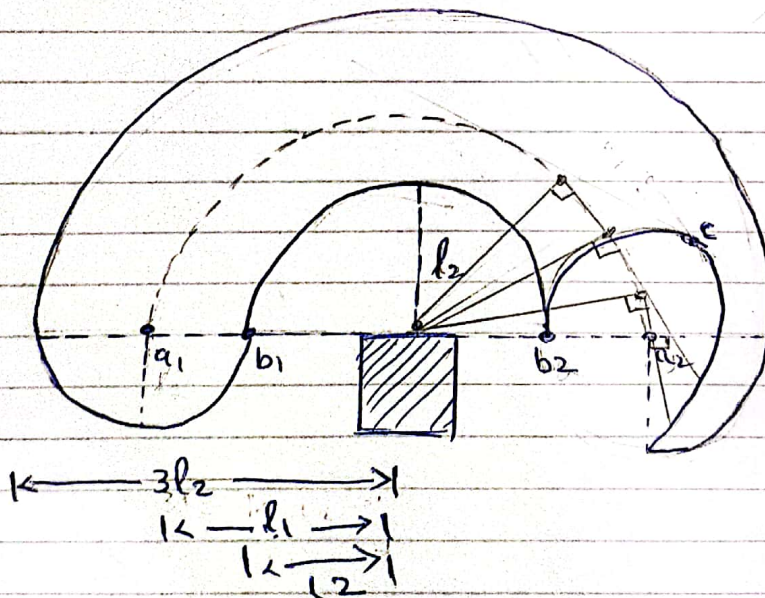 c
l₂
a₁ b₁ b₂ a₂
3l₂
l₁
l2